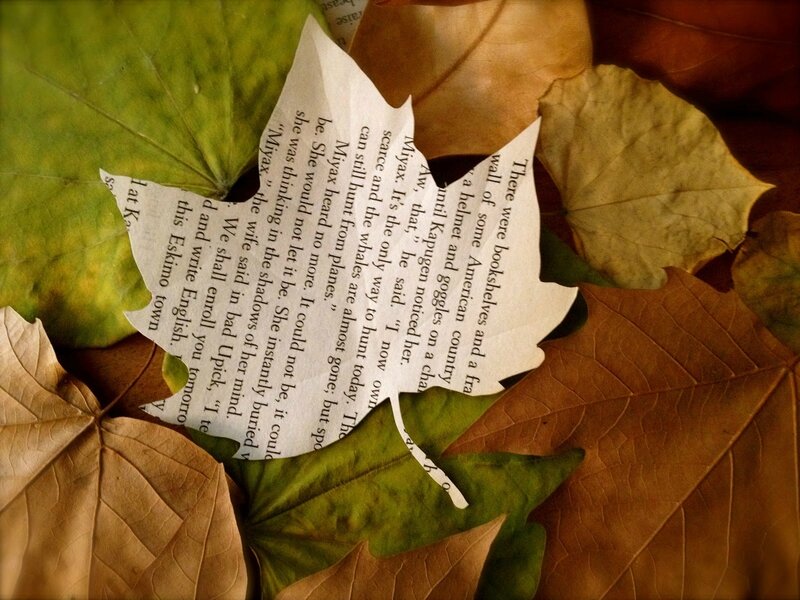 There were bookshelves and a fra
wall of some American country
a helmet and goggles on a cha
until Kapugen noticed her.
"Aw, that," he said. "I now own
Miyax. It's the only way to hunt today. The
scarce and the whales are almost gone; but spo
can still hunt from planes."
Miyax heard no more. It could not be, it could
be. She would not let it be. She instantly buried w
she was thinking in the shadows of her mind.
"Miyax," the wife said in bad Upick, "I te
We shall enroll you tomorro
d and write English.
this Eskimo town
d at Ka
raise